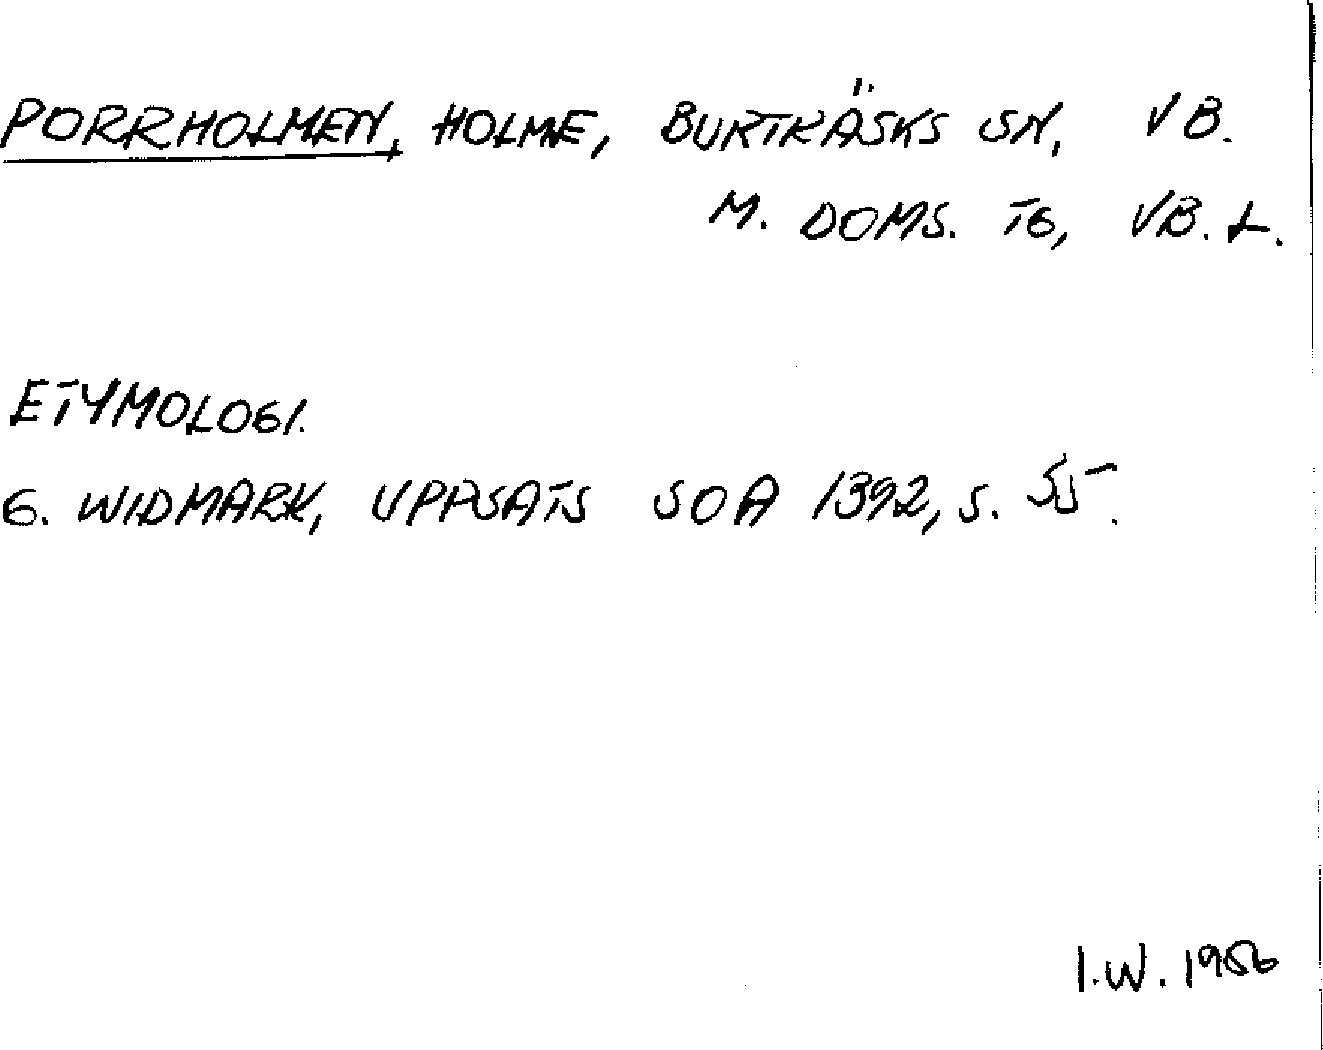 PORRHOLMEN, HOLME, BURTRÄSKS SN, VB.
M. DOMS. TG, VB. L.
ETYMOLOGI.
G. WIDMARK, UPPSATS SOA 1392, S. 55.
I.W. 1956